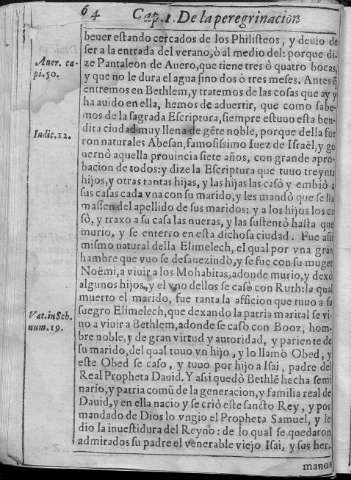 64 Cap. I. De la peregrinacion
beuer estando cercados de los Philisteos, y deuio de
ser a la entrada del verano, ò al medio del: porque di-
ze Pantaleon de Auero, que tiene tres ò quatro bocas,
y que no le dura el agua sino dos ò tres meses. Antes q̃
entremos en Bethlem, y tratemos de las cosas que ay y
ha auido en ella, hemos de aduertir, que como sabe-
mos de la sagrada Escriptura, siempre estuuo esta ben-
dita ciudad muy llena de gẽte noble, porque della fue
ron naturales Abesan, famosissimo Iuez de Israël, y go
uernò aquella prouincia siete años, con grande apro-
bacion de todos: y dize la Escriptura que tuuo treynta
hijos, y otras tantas hijas, y las hijas las casò y embiò a
sus casas cada vna con su marido, y les mandò que se lla
massen del apellido de sus maridos; y a los hijos los ca
sò, y traxo a su casa las nueras, y las sustentò hasta que
murio, y se enterro en esta dichosa ciudad. Fue assi
mismo natural della Elimelech, el qual por vna gran
hambre que vuo se desauezindò, y se fue con su muger
Noëmi, a viuir a los Mohabitas, adonde murio, y dexò
algunos hijos, y el vno dellos se casò con Ruth: la qual
muerto el marido, fue tanta la afficion que tuuo a su
suegro Elimelech, que dexando la patria marital se vi-
no a viuir a Bethlem, adonde se caso con Booz, hom-
bre noble, y de gran virtud y autoridad, y pariente de
su marido, del qual tuuo vn hijo, y lo llamò Obed, y
este Obed se caso, y tuuo por hijo a Isai, padre del
Real Propheta Dauid. Y assi quedò Bethlẽ hecha semi
nario, y patria comũ de la generacion, y familia real de
Dauid, y en ella nacio y se criò este sancto Rey, y por
mandado de Dios lo vngio el Propheta Samuel, y le
dio la inuestidura del Reyno: de lo qual se quedaron
admirados su padre el venerable viejo Isai, y sus her-
manos
Auer. ca-
pi. 50.
Iudic. 12.
Vat. in Sch.
num. 19.